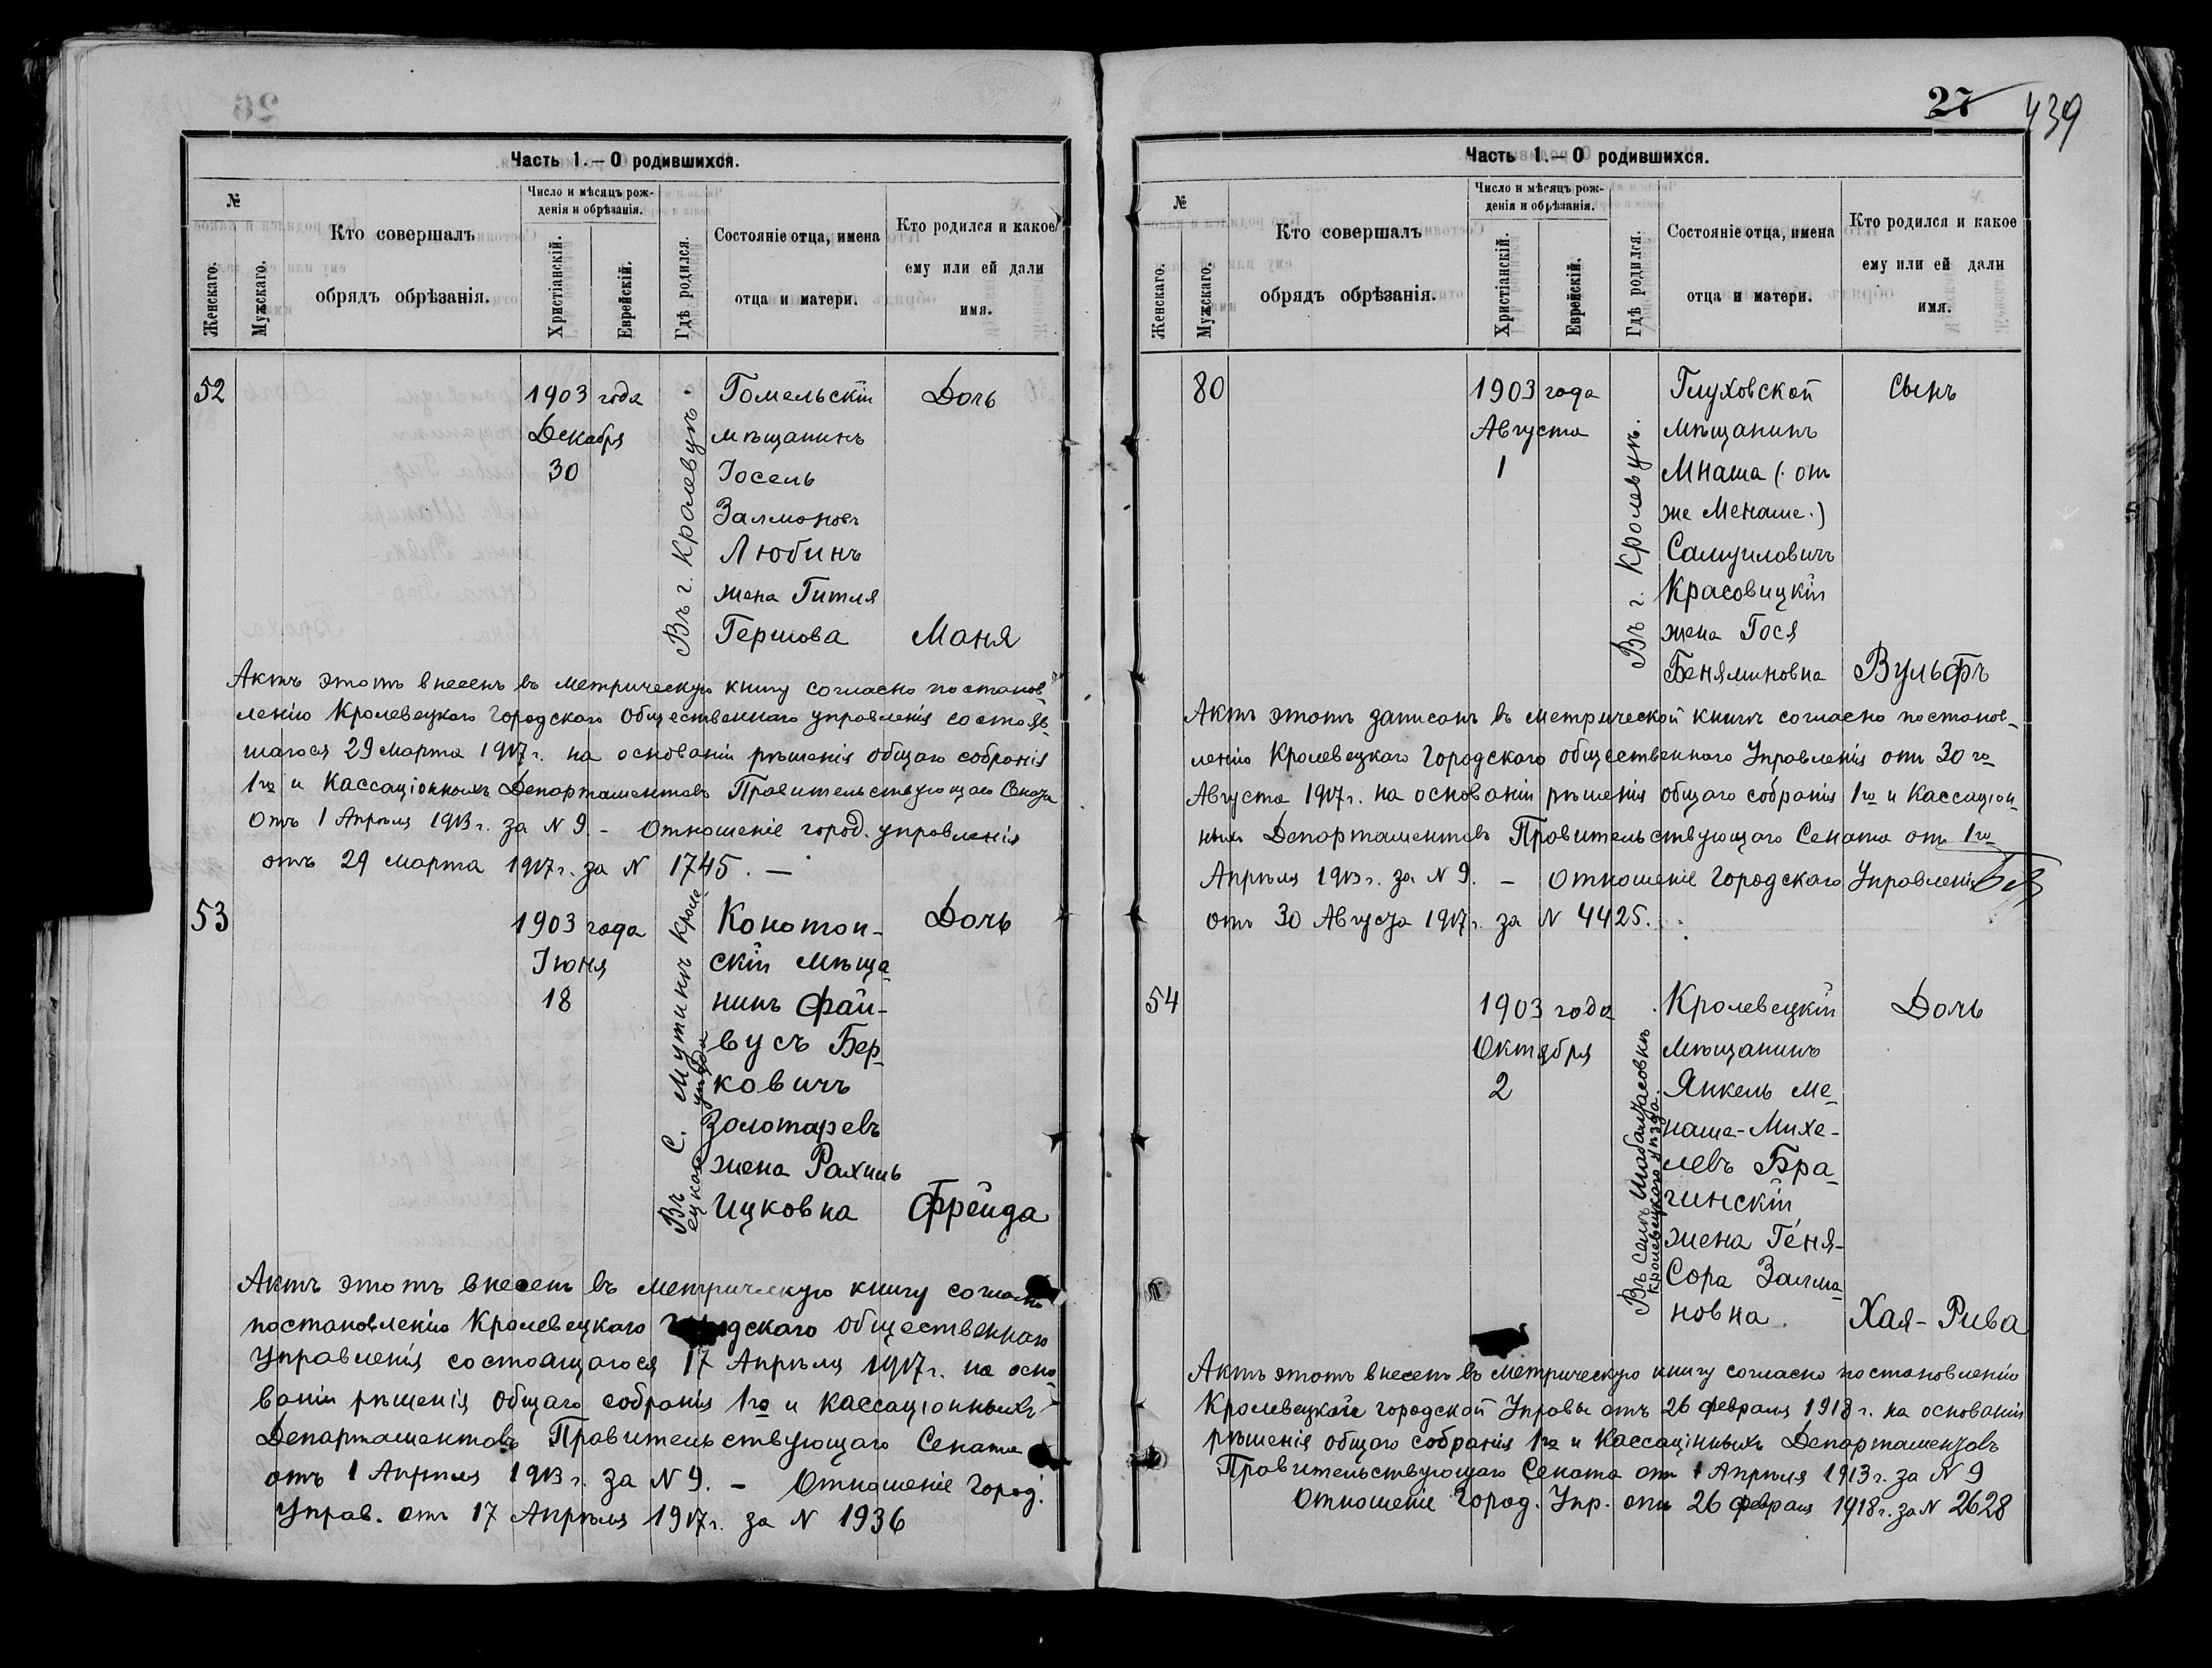 Часть 1.— О родившихся.
№
Женскаго.
Мужскаго.
Кто совершалъ
обрядъ обрѣзанія.
Число и мѣсяцъ рож-
денія и обрѣзанія.
Христіанскій.
Еврейскій.
Гдѣ родился.
Состояніе отца, имена
отца и матери.
Кто родился и какое
ему или ей дали
имя.
52
1903 года
Декабря
30
Въ г. Кролевцѣ.
Гомельскій
мѣщанинъ
Іосель
Залмановъ
Любинъ
жена Гитля
Гершова
Дочь
Маня
Актъ этотъ внесенъ въ метрическую книгу согласно постанов-
ленію Кролевецкаго Городского Общественнаго управленія состояв-
шагося 29 Марта 1917 г. на основаніи рѣшенія общаго собранія
1го и Кассаціонныхъ Департаментовъ Правительствующаго Сената
отъ 1 Апрѣля 1913 г. за N 9. — Отношеніе город. управленія
отъ 29 марта 1917 г. за N 1745. —
53
1903 года
Іюня
18
Въ С. Мутинѣ Кроле
вецкаго уѣзда
Конотоп-
скій Мѣща-
нинъ Фай-
вусъ Бер-
ковичъ
Золотаревъ
жена Рахиль
Ицковна
Дочь
Фрейда
Актъ этотъ внесенъ въ метрическую книгу согласно
постановленію Кролевецкаго Городского общественнаго
Управленія состоящагося 17 Апрѣля 1917 г. на осно-
ваніи рѣшенія общаго собранія 1го и Кассаціонныхъ
Департаментовъ Правительствующаго Сената
отъ 1 Апрѣля 1913 г. за N 9. — Отношеніе Город.
Управ. отъ 17 Апрѣля 1917 г. за N 1936
27 439
Часть 1.— О родившихся.
№
Женскаго.
Мужскаго.
Кто совершалъ
обрядъ обрѣзанія.
Число и мѣсяцъ рож-
денія и обрѣзанія.
Христіанскій.
Еврейскій.
Гдѣ родился.
Состояніе отца, имена
отца и матери.
Кто родился и какое
ему или ей дали
имя.
80
1903 года
Августа
1
Въ г. Кролевцѣ.
Глуховской
Мѣщанинъ
Мнаша (. онъ
же Менаше.)
Самуиловичъ
Красовицкій
жена Гося
Беняминовна
Сынъ
Вульфъ
Актъ этотъ записанъ въ метрической книгѣ согласно постанов-
ленію Кролевецкаго Городского общественнаго Управленія отъ 30 го
Августа 1917 г. на основаніи рѣшенія общаго собранія 1го и Кассацион-
ныхъ Департаментовъ Правительствующаго Сената отъ 1го
Апрѣля 1913 г. за N 9. — Отношеніе Городского Управленія
отъ 30 Августа 1917 г. за N 4425.
54
1903 года
Октября
2
Въ селѣ Шабалтасовкѣ
Кролевецкаго уѣзда.
Кролевецкій
Мѣщанинъ
Янкель Ме-
наше-Михе-
левъ Бра-
гинскій
жена Геня-
Сора Залма-
новна.
Дочь
Хая-Рива
Актъ этотъ внесенъ въ метрическую книгу согласно постановленію
Кролевецкой городской Управы отъ 26 февраля 1918 г. на основаніи
рѣшенія общаго собранія 1го и Кассацінныхъ Департаментовъ
Правительствующаго Сената отъ 1 Апрѣля 1913 г. за N 9
Отношеніе Город. Упр. отъ 26 февраля 1918 г. за N 2628